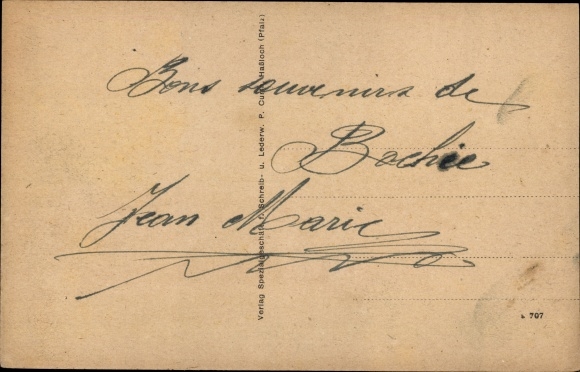 Bons souvenirs de
Bochie
Jean Marie
Verlag Spezialgeschäft f. Schreib- u. Lederw. P. Curt, Haßloch (Pfalz)
707